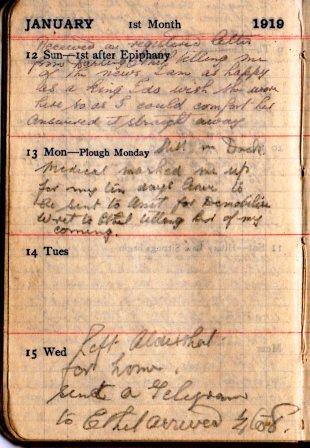 JANUARY 1st Month 1919
received a registered letter
12 Sun—1st after Epiphany
from darling Ethel telling me
of the news I am as happy
as a king I do wish she was
here so as I could comfort her
answered it straight away
13 Mon—Plough Monday Still in Dock.
Medical marked me up
for my ten days leave to
be sent to Unit for Demobilise
wrote to Ethel telling her of my
coming
14 Tues
15 Wed
Left Aldershot
for home.
sent a Telegram
to Ethel arrived